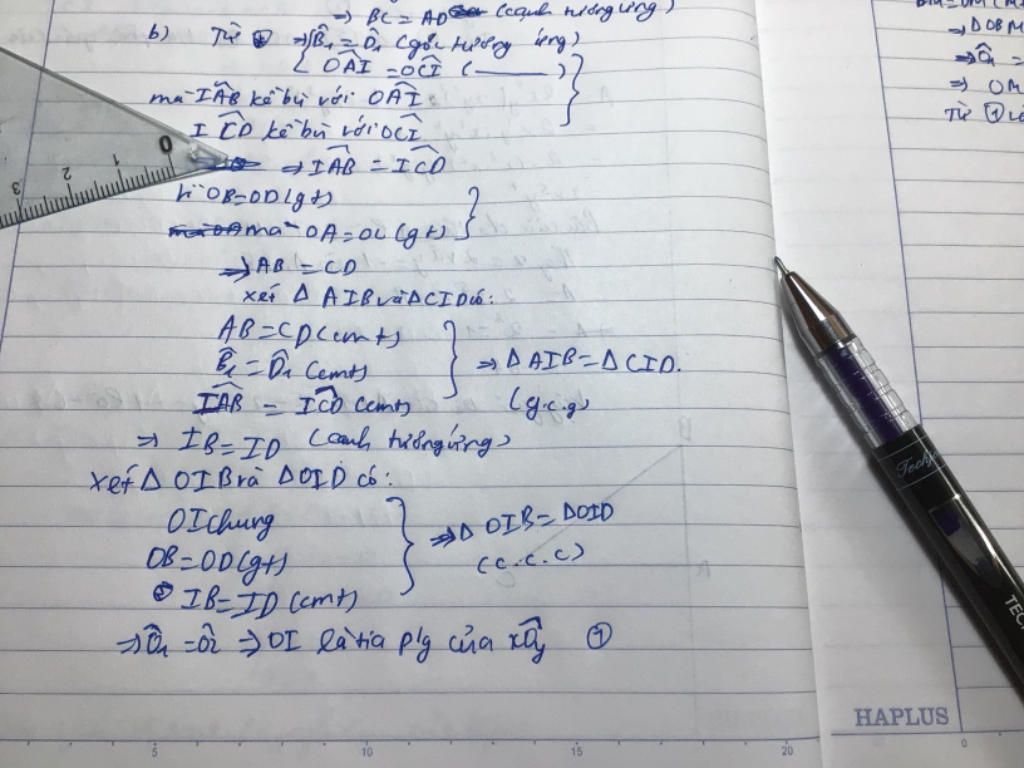 ⇒ BC = AD (cạnh tương ứng)
b) Từ ⇒ B̂₁ = D̂₁ (góc tương ứng)
OÂI = OĈI ( ——— )
mà IÂB kề bù với OÂI
IĈD kề bù với OĈI
⇒ IÂB = IĈD
Vì OB = OD (gt)
mà OA = OC (gt)
⇒ AB = CD
xét Δ AIB và ΔCID có:
AB = CD (cmt)
B̂₁ = D̂₁ (cmt)
⇒ Δ AIB = Δ CID.
IÂB = IĈD (cmt)
(g.c.g)
⇒ IB = ID (cạnh tương ứng)
xét Δ OIB và ΔOID có:
OI chung
OB = OD (gt)
IB = ID (cmt)
⇒ Δ OIB = ΔOID
(c.c.c)
⇒ Ô₁ = Ô₂ ⇒ OI là tia p/g của xÔy ①
⇒ ΔOBM
⇒ Ô₁ =
⇒ OM
Từ ①
0 1 2 3
HAPLUS
5 10 15 20 0
TECH